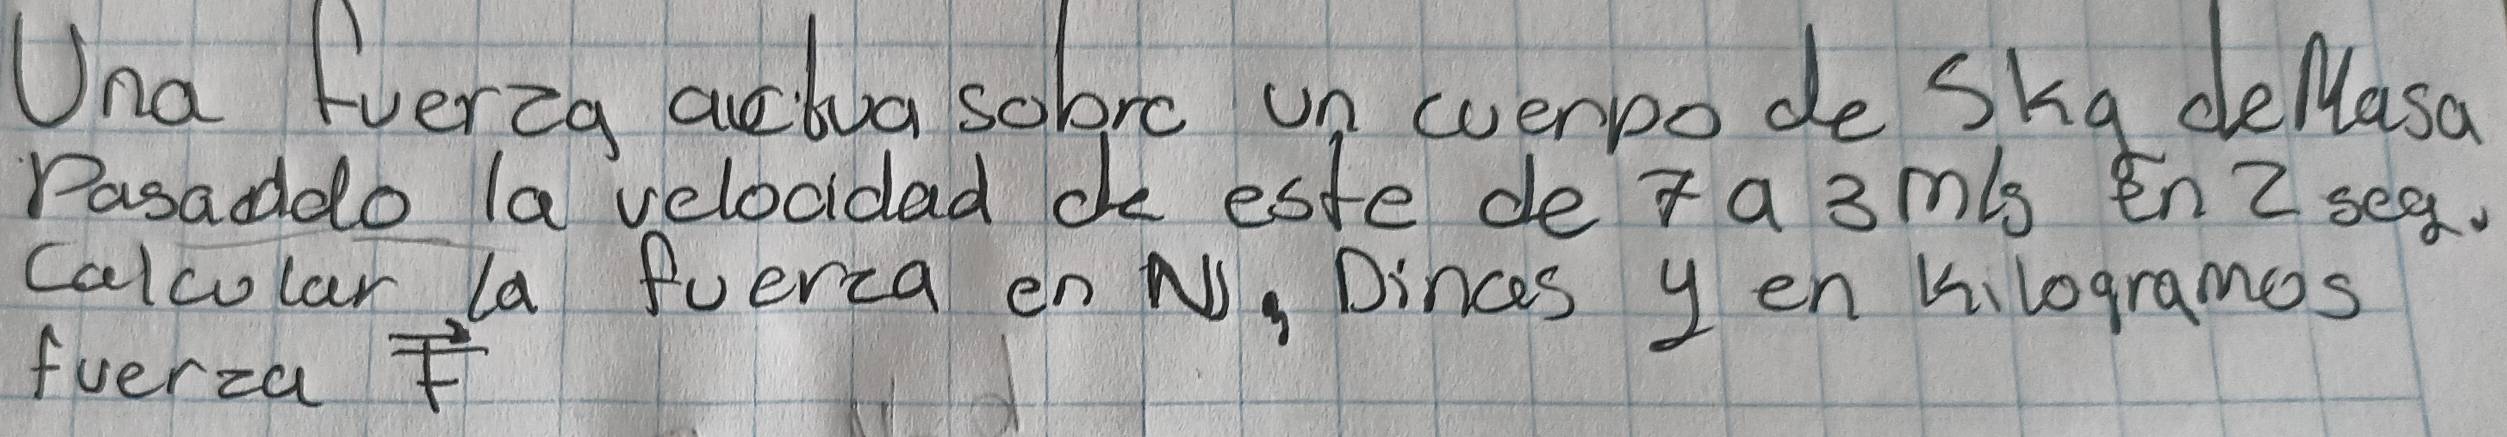 Una fuerza actua sobre un cuerpo de 5kg de Masa
Pasaddo la velocidad de este de 7 a 3 m/s En 2 seg.
Calcular la fuerza en N, Dinas y en Kilogramos
fuerza F